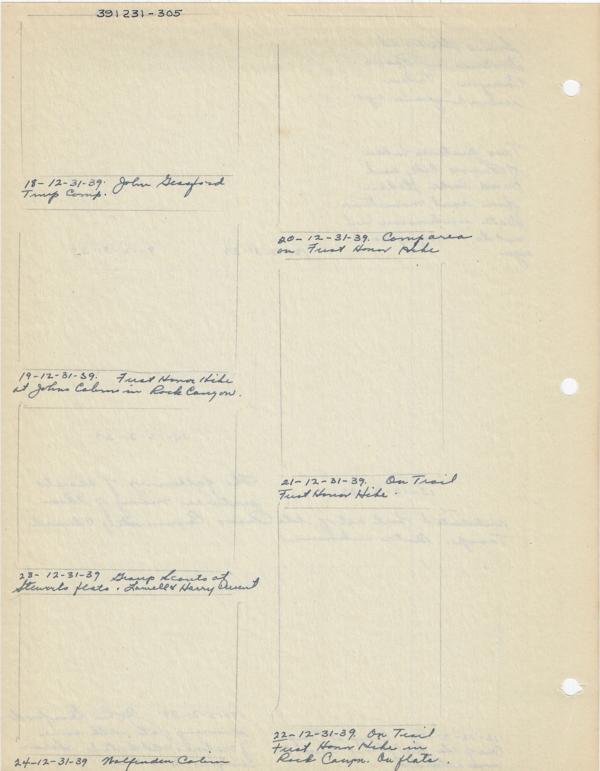 391231-305
18-12-31-39. John Gessford
Temp Comp.
19-12-31-39. First Honor Hike
at Johns Cabin in Rock Canyon.
23-12-31-39 Group Scouts at
Stewarts flats. Lowell & Harry
24-12-31-39 Wolfenden Cabin
20-12-31-39. Camp area
on First Honor Hike
21-12-31-39. On Trail
First Honor Hike.
22-12-31-39. On Trail
First Honor Hike in
Rock Canyon. On flats.